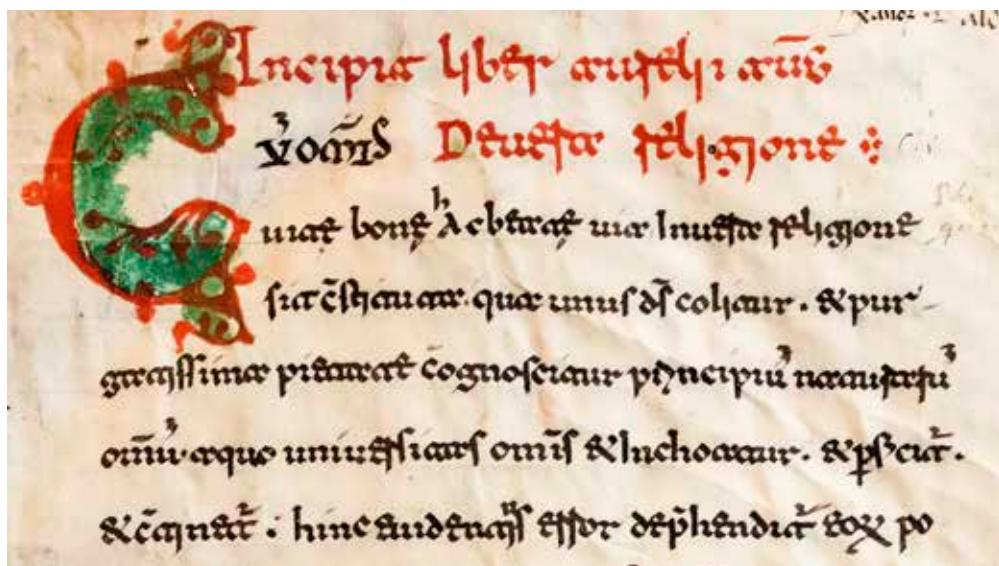 Incipit liber aureli aug̅
CU̓ om̅is De uera religione
uitę bonę hAc beatę uia In uera religione
sit c̅stituta. qua unus d̅s colitur. & pur
gatissima pietate cognoscitur principiu̓ naturaru̓
om̅iu̓. a quo uniuersitas om̅is & Inchoatur. & ꝑficit̓.
& c̅tinet̓: hinc euidentius error dep̅hendit̓ eoꝝ po